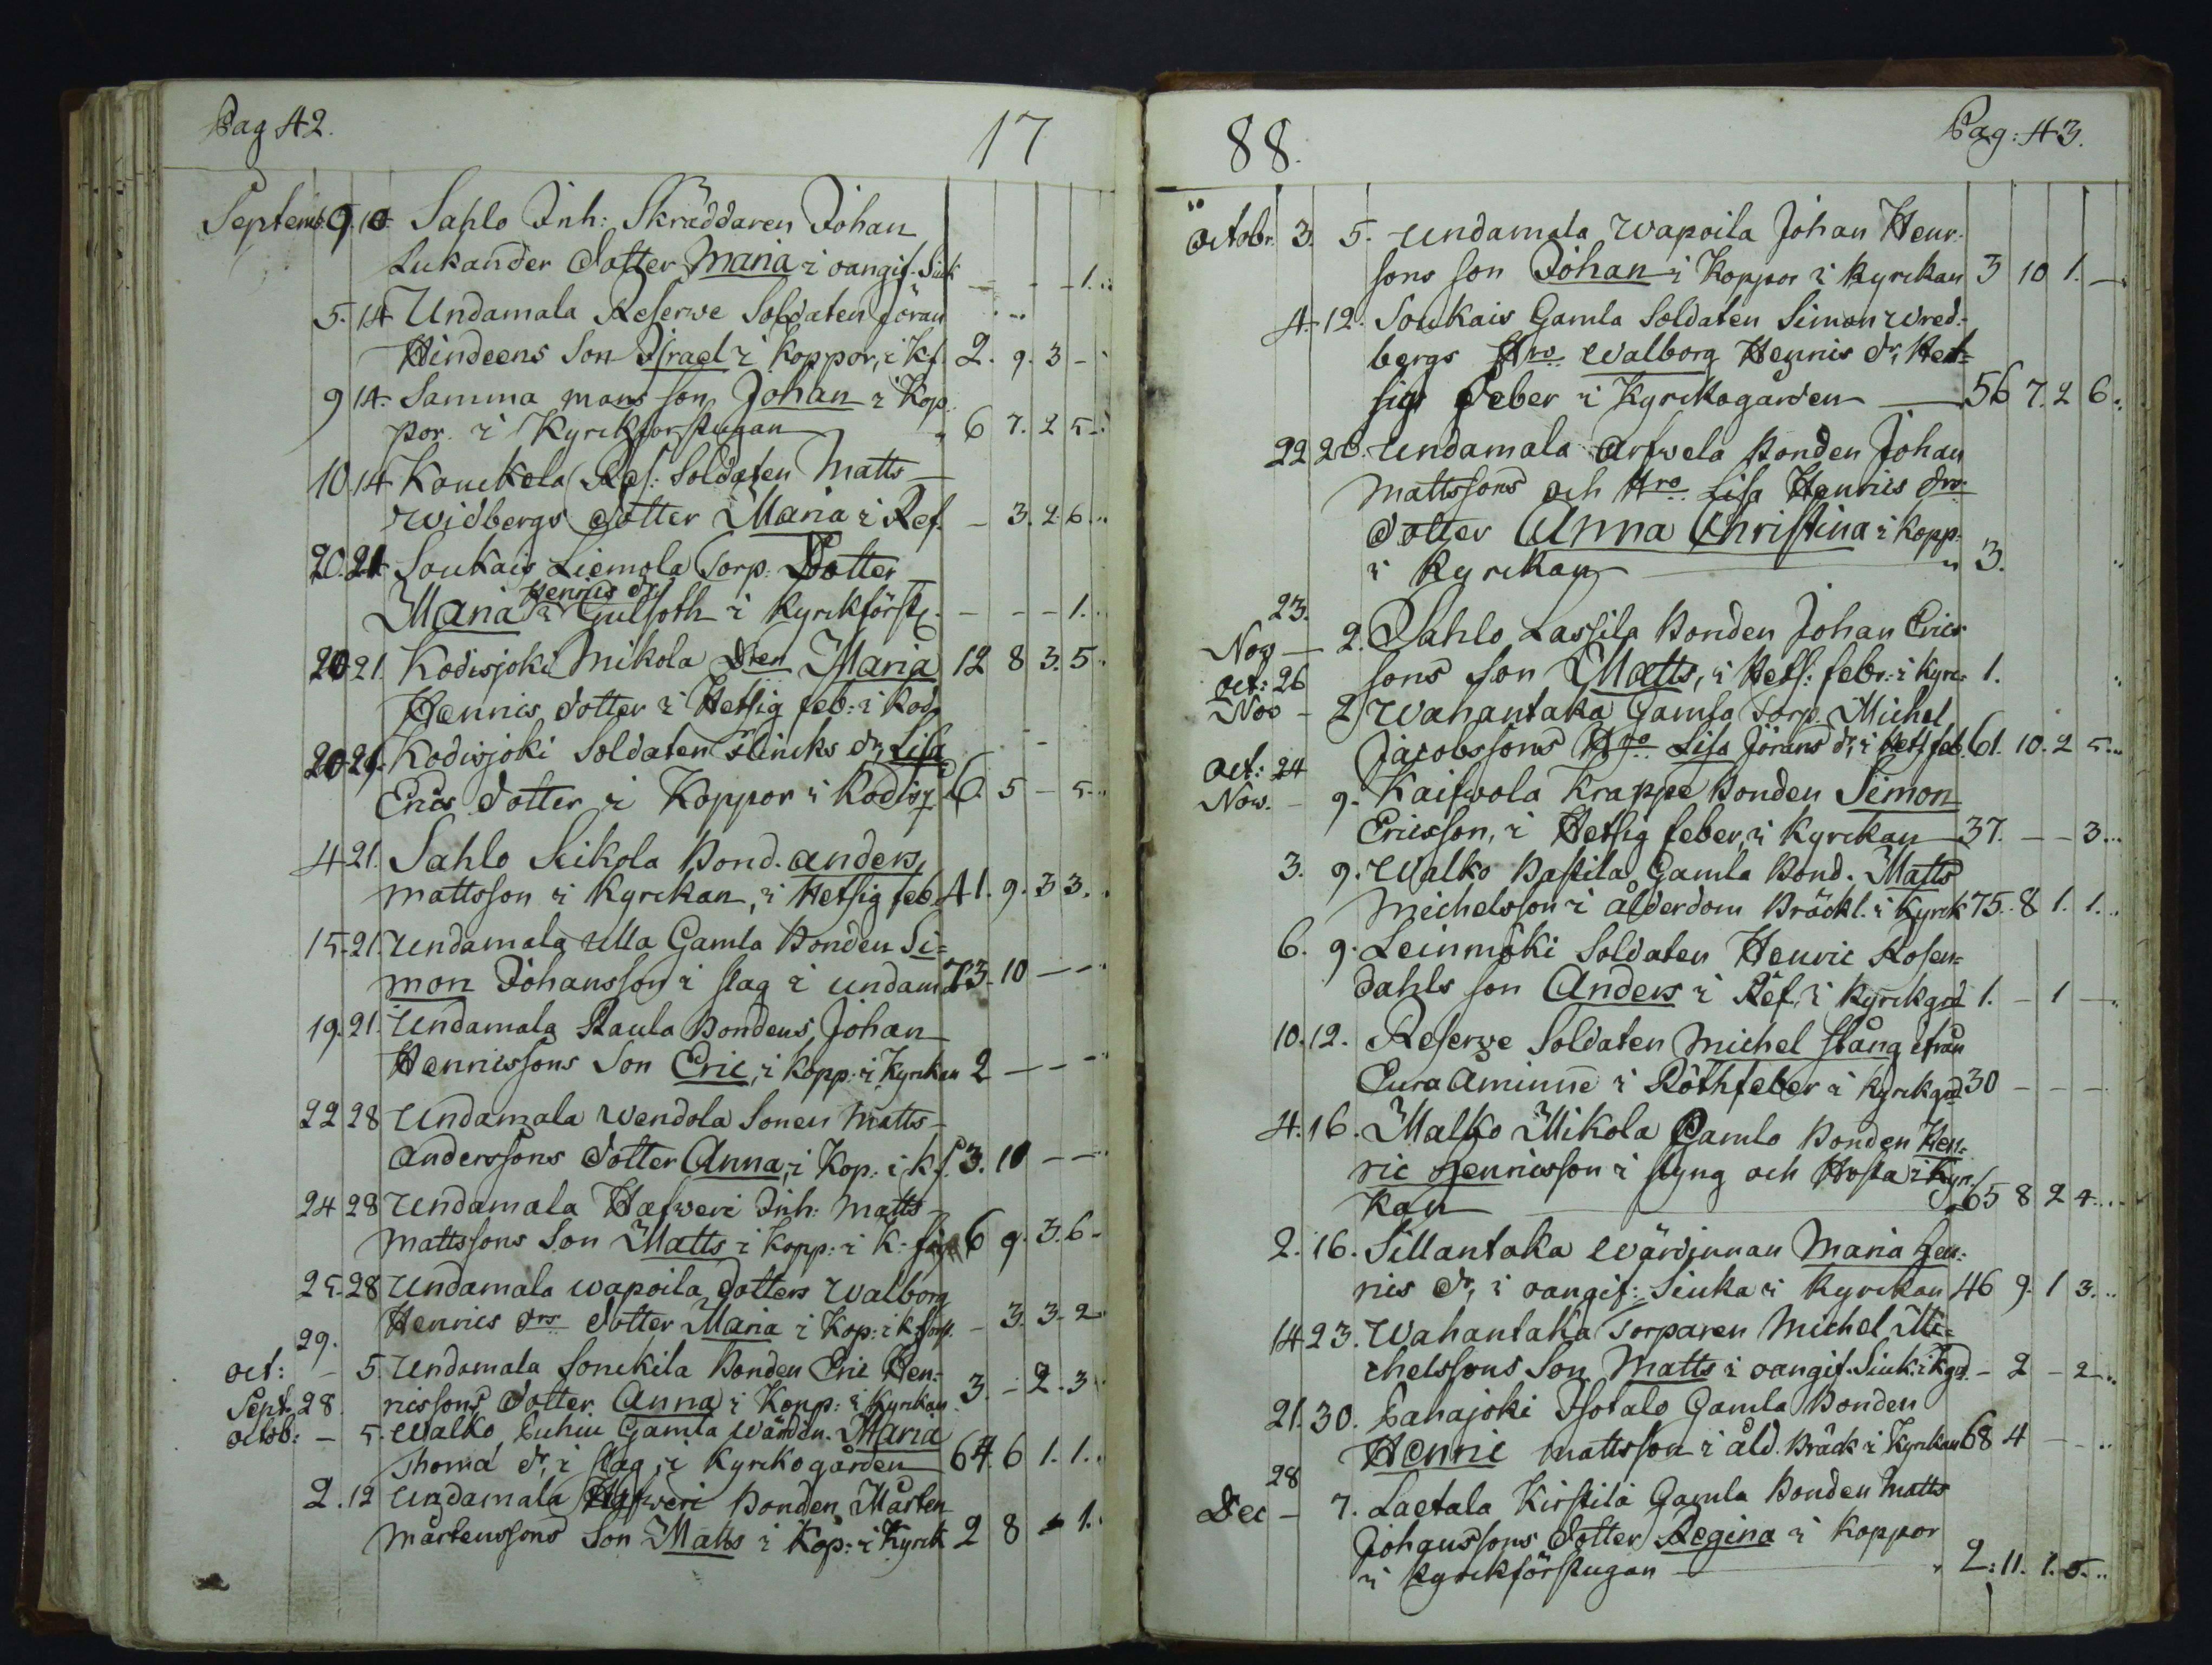 Pag 42. 17
Septemb. 9. 10. Sahlo Inh: Skräddaren Johan
Lukander Dotter Maria i oangif. Siuk - - - 1.
5. 14 Undamala Reserve Soldaten Jöran
Hindeens Son Israel i Koppor, i Kf. 2. 9. 3 -
9 14. Samma mans son Johan i Kop-
por. i Kyrckförstugan 6 7. 2 5.
10 14 Kouckela Res: Soldaten Matts
Widbergs dotter Maria i Ref. - 3. 2. 6.
20. 21 Soukais Liemola Torp. Dotter
Henrics dr
Maria Gulsoth i Kyrckförst. - - - 1.
20 21. Kodisjoki Mikola Dren Maria 12 8 3. 5.
Hennis dotter i Hetsig feb: i Kod.
20 29. Kodisjoki Soldaten Slincks dr, Lisa
Erics dotter i Koppor i Kodisj. 6. 5 - 5.
4 21. Sahlo Seikola Bond. anders
mattsson i Kyrckan, i Hetsig feb. 41. 9. 3 3.
15. 21. Undamala Ulla Gamla Bonden Si=
mon Johansson i slag i undam. 73. 10 - -
19. 21. Undamala Raula Bondens Johan
Henricssons Son Eric, i Kopp: i Kyrckan 2 - - -
22 28 Undamala Wendola Sonen Matts
Anderssons dotter Anna, i Kop: i Kf. 3. 10 - -
24 28 Undamala Hafweri Inh: Matts
Mattssons Son Matts i Kopp: i K: 6 9. 3. 6
25. 28 Undamala Wapoila Dotters Walborg
Henrics drs dotter Maria i Kop: i K. - 3. 3. 2
29.
Oct: - 5. Undamala Sonckila Bonden Eric Hen-
Sept. 28. ricssons Dotter Anna i Kopp: i Kyrkan 3. - 2. 3
Octob: - 5. Walko Juhui Gamla Wärdin. Maria
Thoma dr, i slag, i Kyrckogården 64. 6 1. 1.
2. 12 Undamala Hafweri Bonden Mårten
Mårtenssons Son Matts i Kop: i Kyrck 2 8 - 1.
88. Pag: 43.
Octobr. 3. 5. Undamala Wapoila Johan Henr-
sons son Johan i Koppor i Kyrckan 3 10 1. -
4. 12. Soukais Gamla Soldaten Simon Wred-
bergs Hro Walborg Hennis dr, i Het=
sig feber i Kyrckogården 56 7. 2 6.
22 26. Undamala Arfwela Bonden Johan
Mattssons och Hro Lisa Henrics drs
dotter Anna Christina i Kopp:
i Kyrckan 3.
23.
Nov - 2. Sahlo Lassila Bonden Johan Erics
Oct: 26 sons son Matts, i Hets: febr: i Kyrc. 1.
Nov - 2. Wahantaka Gamla Torp. Michel
Jacobssons Hro Lisa Jörans dr, i Hets feb. 61. 10. 2 5.
Oct: 24
Nov. - 9. Kaifwola Krappe Bonden Simon
Ericsson, i Hetsig feber, i Kyrckan 37. - - 3.
3. 9. Walko Bastila Gamla Bond. Matts
Michelsson i ålderdom Bräckl. i Kyrck 75. 8 1. 1.
6. 9. Leinmäki Soldaten Henric Rosen=
dahls son Anders i Ref. i Kyrckgrd 1. - 1 -
10. 12. Reserve Soldaten Michel Stång ifrån
Eura Aminne i Röthfeber i Kyrckgrd 30 - - -
4. 16. Malko Mikola Gamla Bonden Hen=
ric Henricsson i styng och Hosta i Kyr-
kan 65 8 2 4.
2. 16. Sillantaka Wärdinnan Maria Hen=
rics dr, i oangif: Siuka i Kyrckan 46 9. 1 3.
14 23. Wahantaka Torparen Michel Mi=
chelssons Son Matts i oangif. Siuk: i Kgrd. - 2 - 2
21. 30. Panajoki Isotalo Gamla Bonden
Henric Mattsson i åld. Bräck i Kyrckan 68 4 - -
28
Dec - 7. Laetala Kirstila Gamla Bonden Matts
Johanssons Dotter Regina i Koppor
i Kyrckförstugan 2: 11. 1. 5.